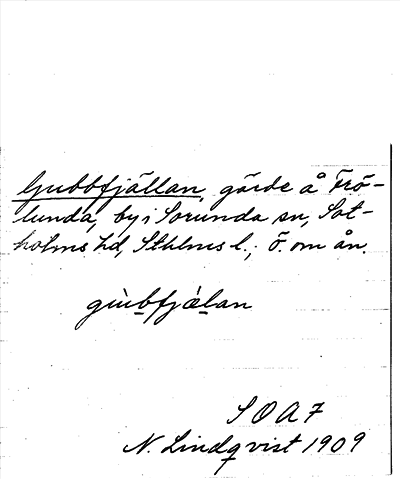 Gubbfjällan, gärde å Frö-
lunda, by i Sorunda sn, Sot-
holms hd, Sthlms l.; ö. om ån.
gùbfjæ̀lan
S O A 7
N. Lindqvist 1909